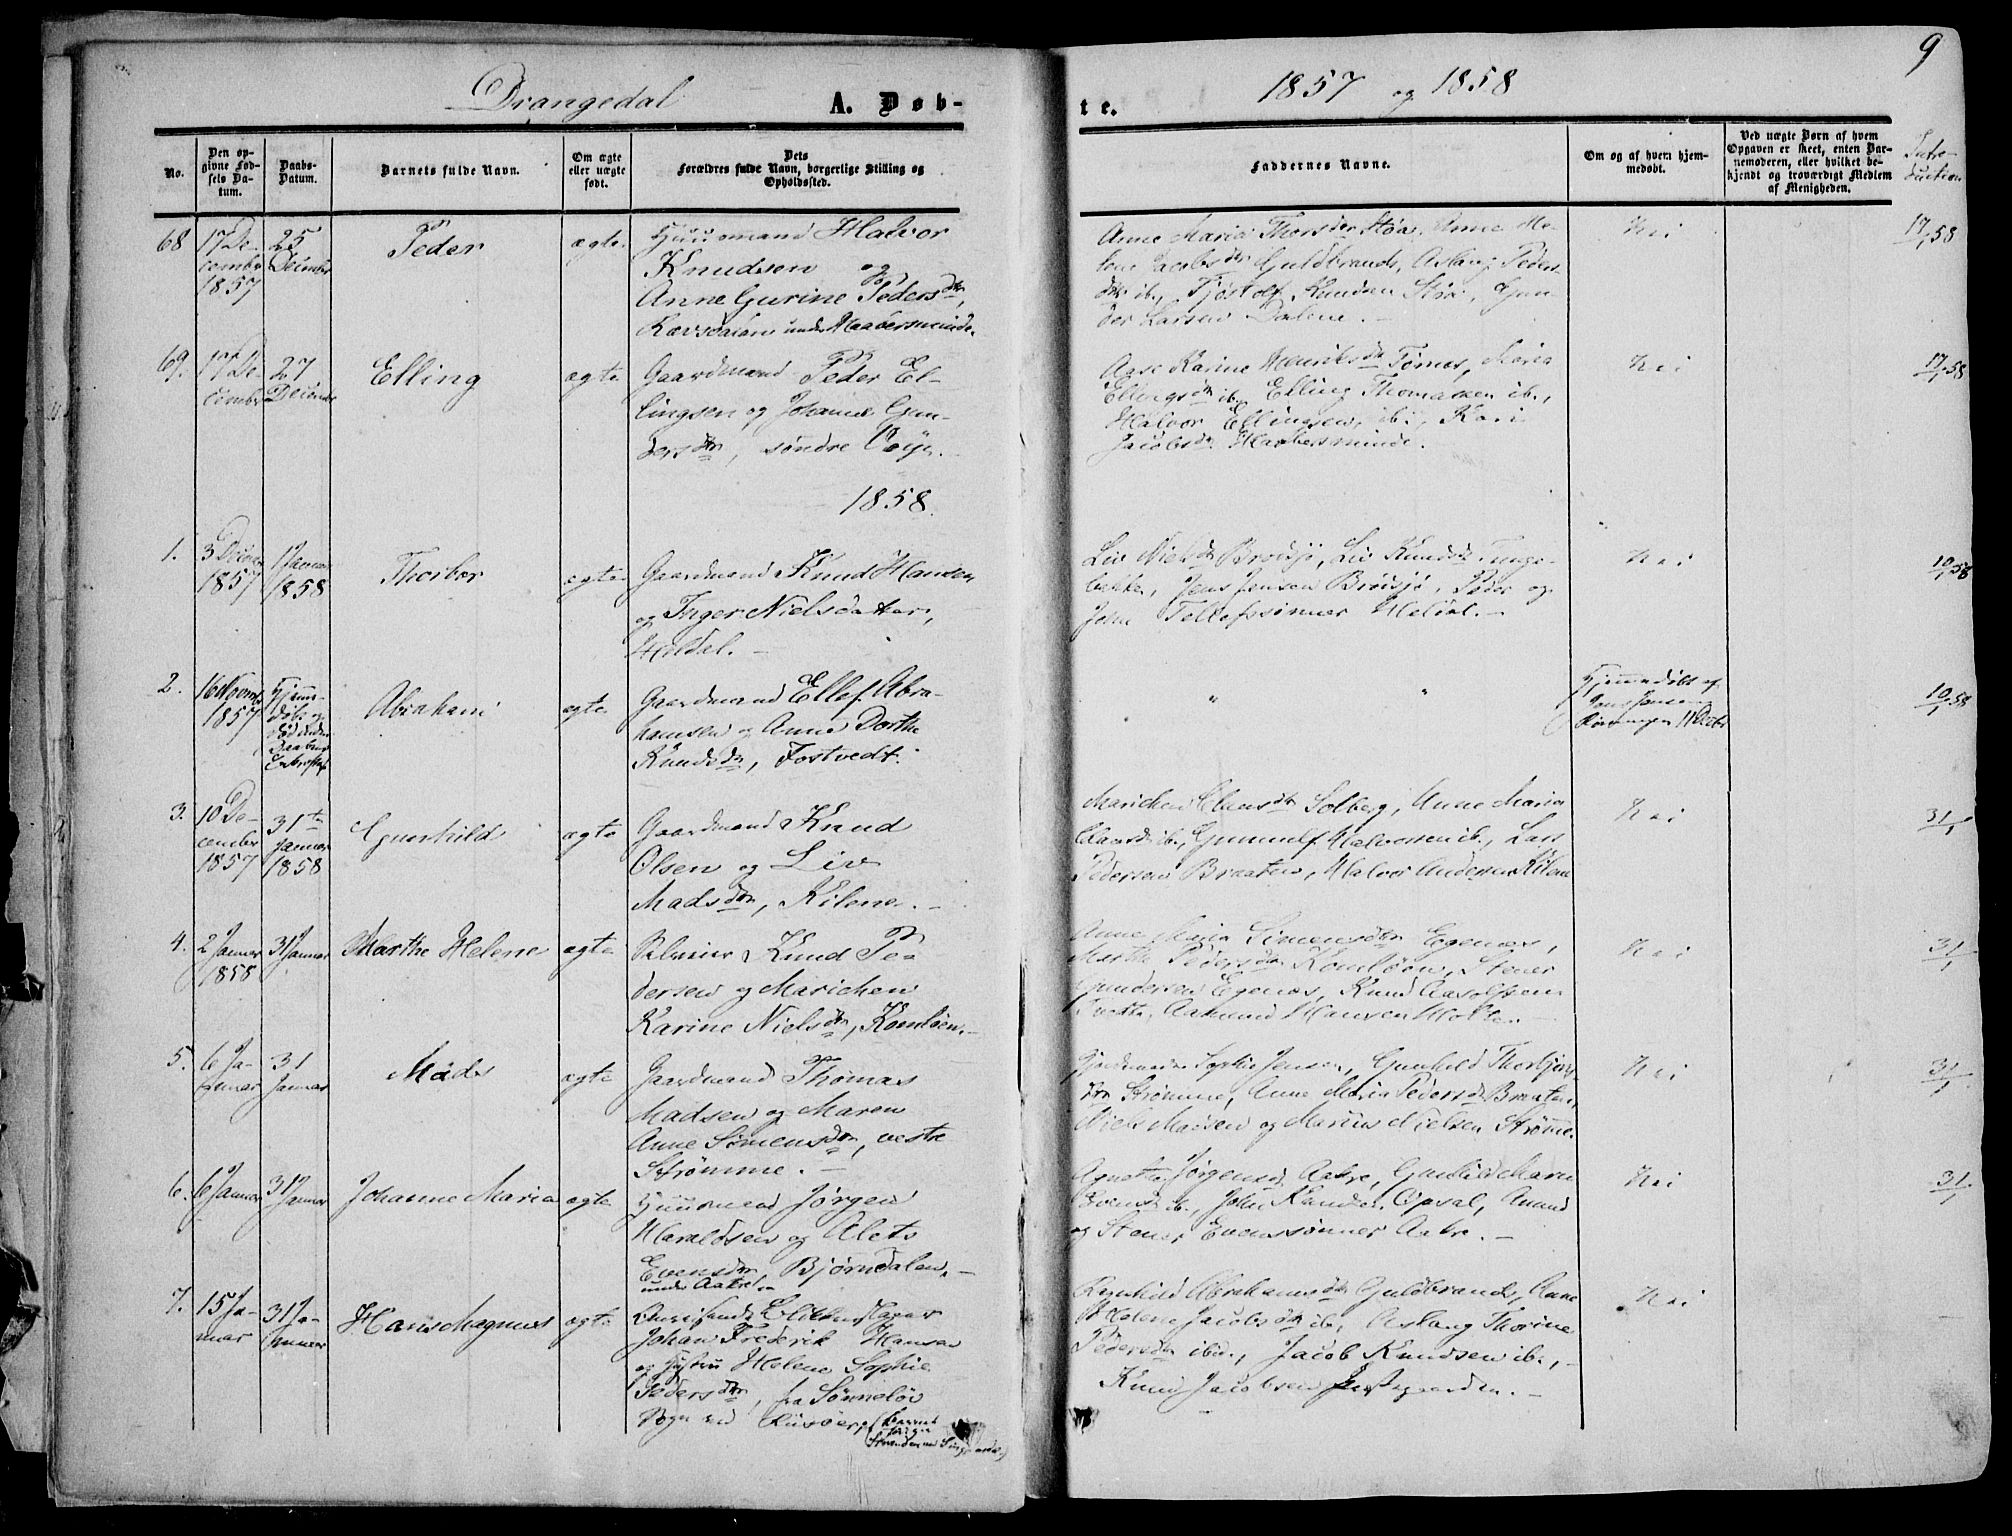 9
Drangedal
A. Døb-
te.
1857 og 1858
No.
Den op-
givne Fød-
sels Da-
tum.
Daabs-
Datum.
Barnets fulde Navn.
Om ægte
eller uægte
født.
Dets
Forældres fulde Navn, borgerlige Stilling og
Opholdssted.
Faddernes Navne.
Om og af hvem hjem-
medøbt.
Ved uægte Børn af hvem
Opgaven er skeet, enten Bar-
nemoderen, eller hvilket be-
kjendt og troværdigt Medlem
af Menigheden.
Intro-
duction
68
17 De-
cember
1857
25
December
Peder
ægte
Huusmand Halvor
Knudsen og
Anne Gurine Pedersdtr,
under
Anne Maria Thorsdtr Støa, Anne He-
lene Jacobsdtr Guldbrands, Aslaug Peders-
dtr ib., Tjøstolf Knudsen Støa, Gun-
der Larsen Dalene. -
Nei
17/1 58
69.
17 De-
cember
27
December
Elling
ægte
Gaardmand Peder El-
lingsen og Johanne Gun-
dersdtr, søndre
Aase Karine Henriksdtr Tørnes, Maria
Ellingsdtr ib., Elling Thomassen ib.,
Halvor Ellingsen, ib., Kari
Jacobsdtr
Nei
17/1 58
1858.
1.
3 December
1857
1 Januar
1858
Thorbor
ægte
Gaardmand Knud Hansen
og Inger Nielsdatter,
Heldal. -
Liv Nielsdtr Brødsjø, Liv Knudsdtr Tinge-
bekke, Jens Jensen Brødsjø, Peder og
John Tellefssønner Heldal. -
Nei
10/1 58
2.
16 Novembr
1857
Hjem-
døbt og
Abraham
ægte
Gaardmand Ellef Abra-
hamsen og Anne Dorthe
Knudsdtr, Tostvedt.
" "
Hjemmedøbt af
Jens Jensen
10/1 58
3.
10 De-
cember
1857
31te
Januar
1858
Gunhild
ægte
Gaardmand Knud
Olsen og Liv
Madsdtr, Kilene. -
Marichen Clausdtr Solberg, Anne Maria
Clausdtr ib., Gunnulf Halvorsen ib., Lars
Pedersen Braaten, Halvor Andersen Kilene
Nei
31/1
4.
2 Januar
1858
31 Januar
Marthe Helene
ægte
Selveier Knud Pe-
dersen og Marichen
Karine Nielsdtr, Komløen. -
Anne Maria Simensdtr Egenæs,
Marthe Pedersdtr Komløen, Stener
Gundersen Egenæs, Knud Aasolfsen
Tvedte, Aamund Hansen Holte. -
Nei
31/1
5.
6 Ja-
nuar
31
Januar
Mads
ægte
Gaardmand Thomas
Madsen og Maren
Anne Simensdtr, vestre
Strømme. -
Sophie Jensen, Gunhild Thorbjørns-
dtr Strømme, Anne Maria Pedersdtr Braaten,
Niels Madsen og Marius Nielsen Strømme.
Nei
31/1
6.
6 Januar
31 Januar
Johanne Maria
ægte
Huusmand Jørgen
Haraldsen og Alets
Evensdtr, Bjørndalen, -
under Aakre. -
Agnethe Jørgensdtr Aakre, Gunhild Maren
Evensdtr ib., John Knudsen Opsal, Amund
og Stener Evenssønner Aakre. -
Nei
31/1
7.
15 Ja-
nuar
31 Ja-
nuar
Hans Magnus
ægte
Johan Frederik Hansen
og Hustru Helene Sophie
Pedersdtr, fra Sønneløv
Sogn ved Risøer,
Ragnhild Abrahamsdtr Guldbrands, Anne
Helene Jacobsdtr ib., Aslaug Thorine
Pedersdtr ibid., Jacob Knudsen ib., -
Knud Jacobsen
Nei